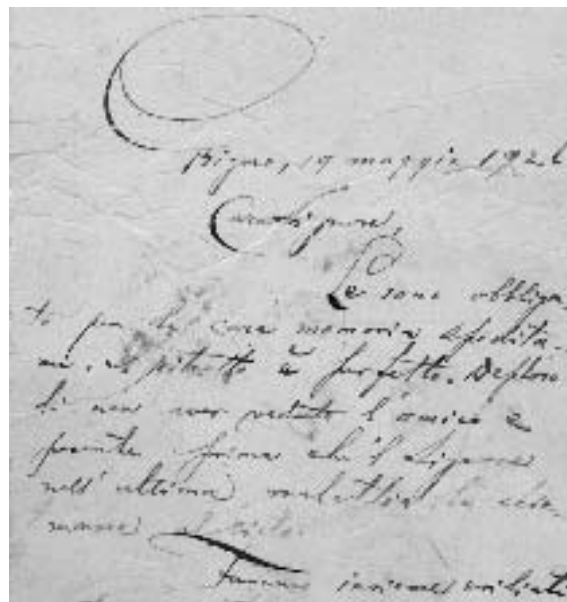 19 maggio 192
Caro Signore,
Le sono obbliga
to per la cara memoria
ma, il ritratto è perfetto. Deploro
di non aver veduto l'amico e
parente prima che il Signore
nell'ultima malattia lo chia
masse al cielo.
Fummo insieme